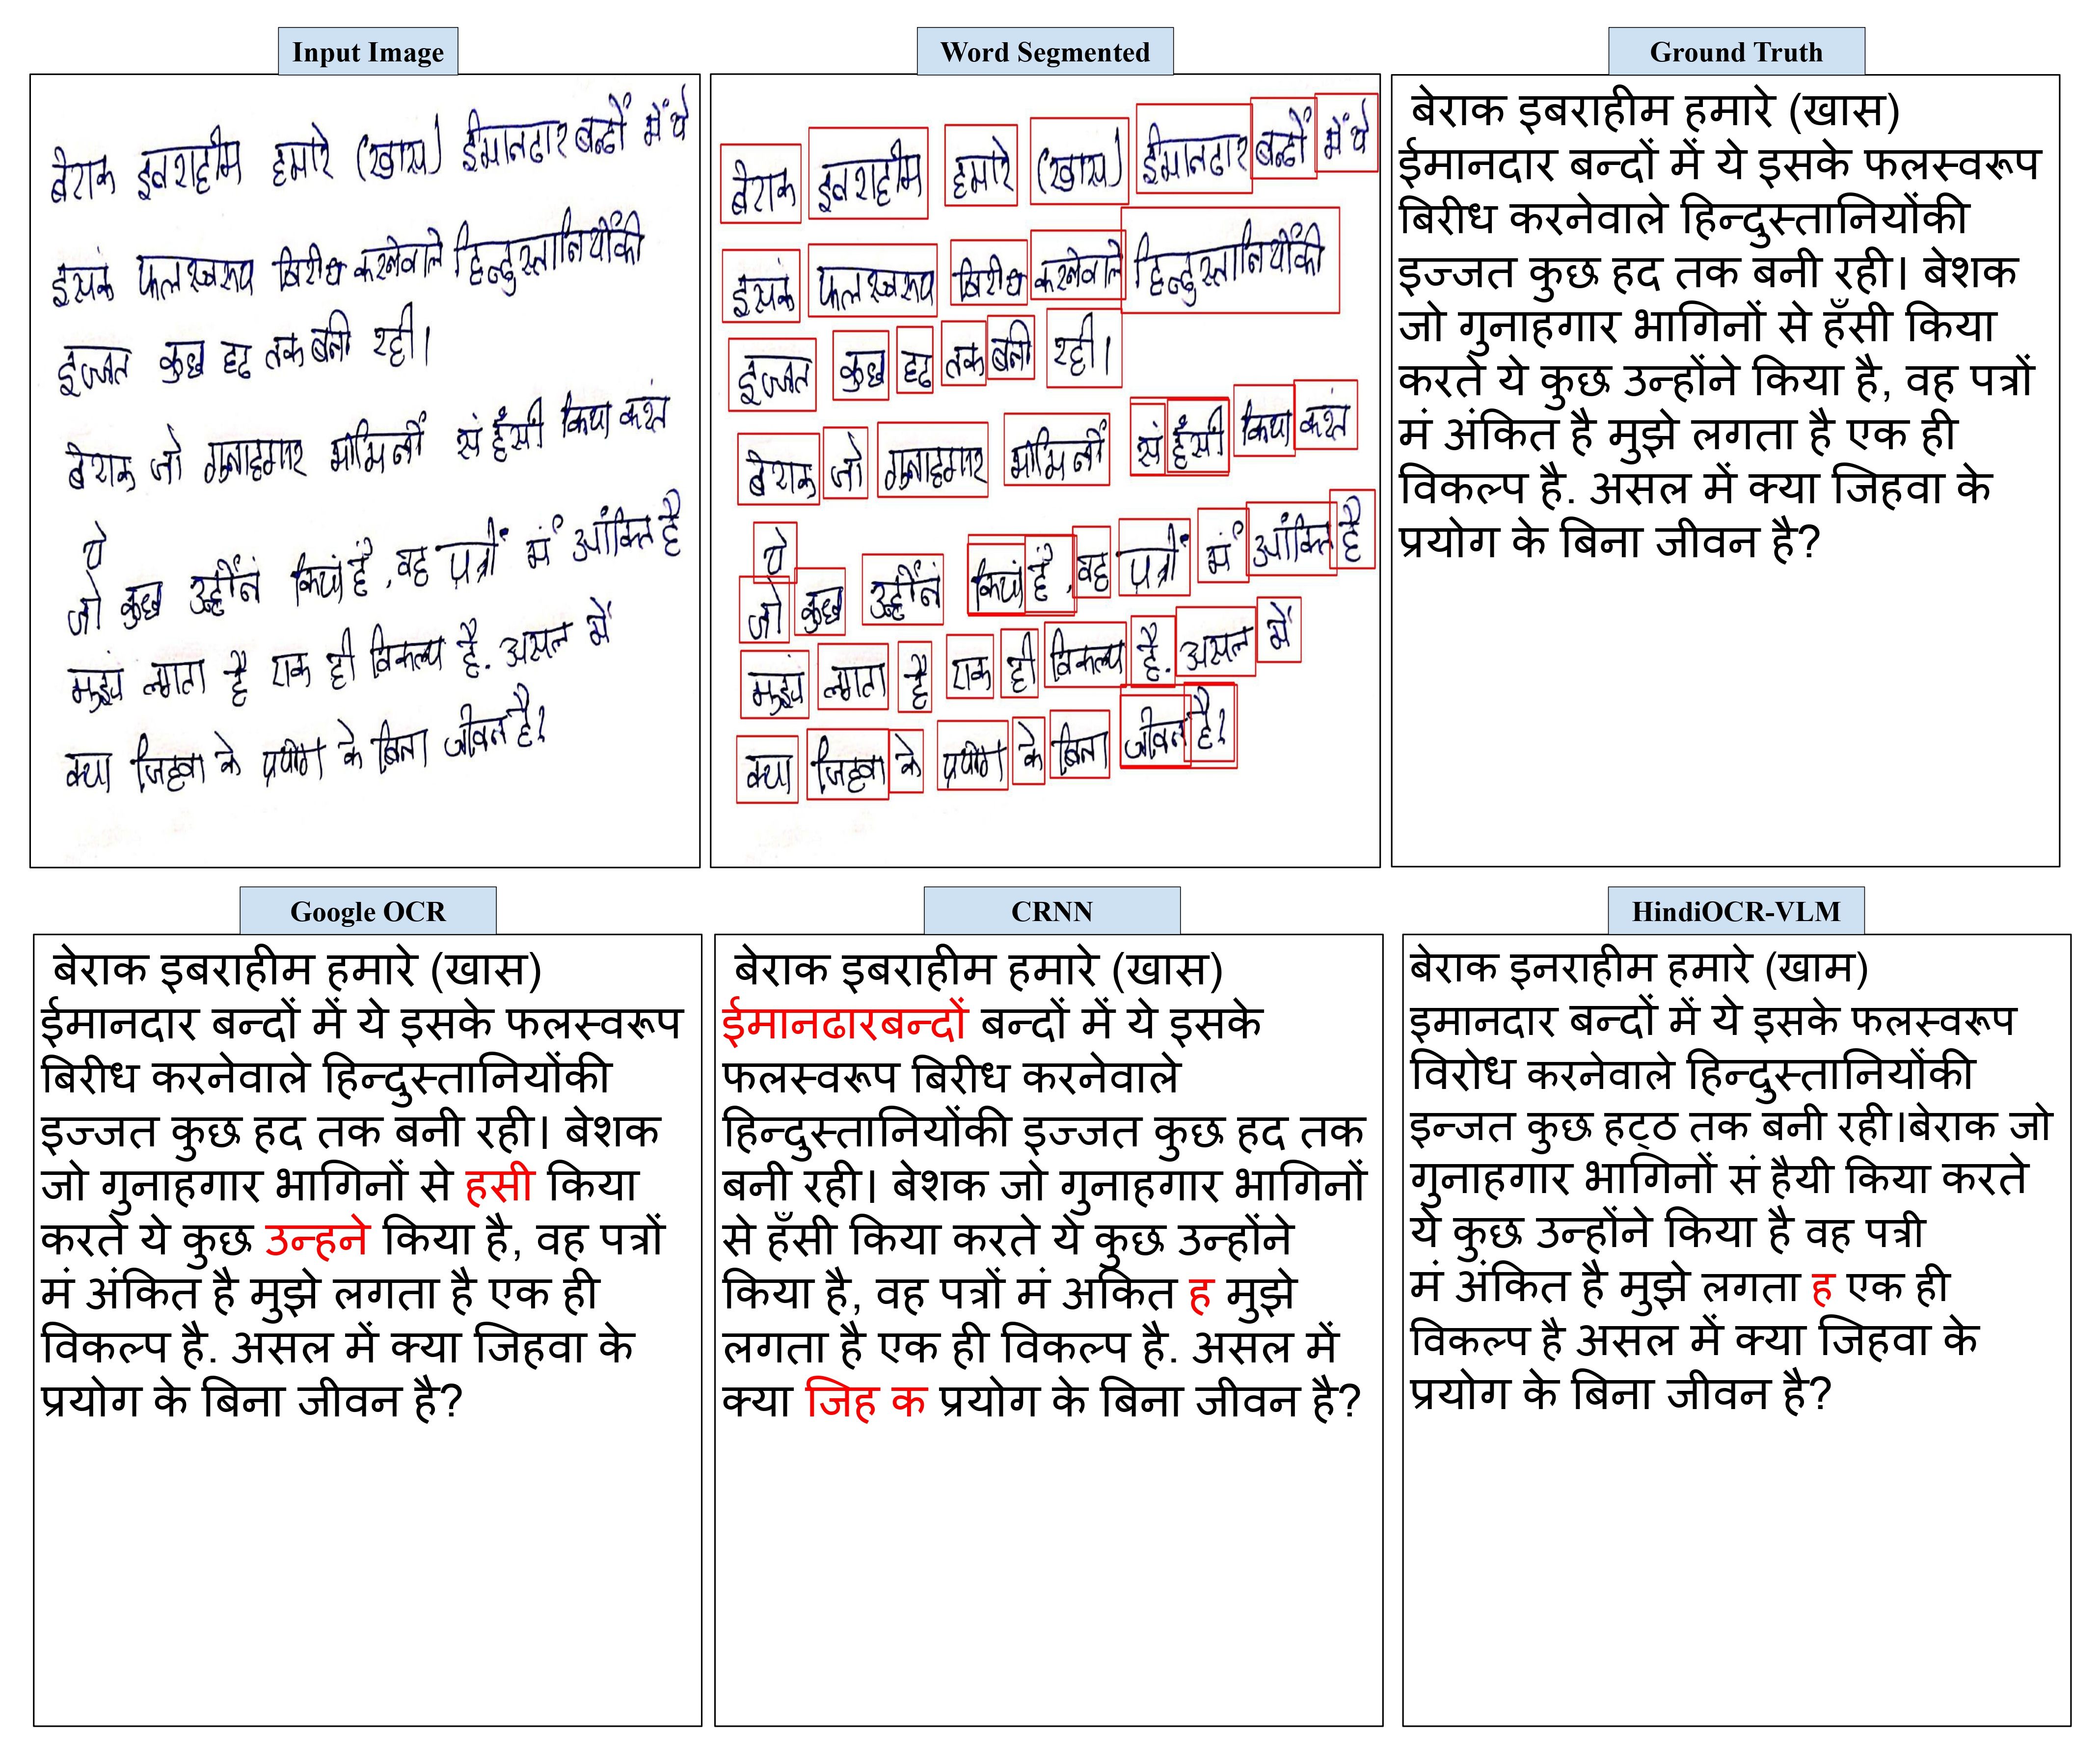 Input Image
बेराक इबराहीम हमारे (खास) ईमानदार बन्दों में ये
इसके फलस्वरूप बिरीध करनेवाले हिन्दुस्तानियोंकी
इज्जत कुछ हद तक बनी रही।
बेराक जो गुनाहगार मोमिनों सं हँसी किया करतं
ये
जो कुछ उन्होंनं कियां है, वह पत्रों मं अंकित है
मुझं लगता है एक ही विकल्प है. असल में
क्या जिहवा के प्रयोग के बिना जीवन है?
Word Segmented
बेराक इबराहीम हमारे (खास) ईमानदार बन्दों में ये
इसके फलस्वरूप बिरीध करनेवाले हिन्दुस्तानियोंकी
इज्जत कुछ हद तक बनी रही।
बेराक जो गुनाहगार मोमिनों सं हँसी किया करतं
ये
जो कुछ उन्होंनं कियां है, वह पत्रों मं अंकित है
मुझं लगता है एक ही विकल्प है. असल में
क्या जिहवा के प्रयोग के बिना जीवन है?
Ground Truth
बेराक इबराहीम हमारे (खास)
ईमानदार बन्दों में ये इसके फलस्वरूप
बिरीध करनेवाले हिन्दुस्तानियोंकी
इज्जत कुछ हद तक बनी रही। बेशक
जो गुनाहगार भागिनों से हँसी किया
करते ये कुछ उन्होंने किया है, वह पत्रों
मं अंकित है मुझे लगता है एक ही
विकल्प है. असल में क्या जिहवा के
प्रयोग के बिना जीवन है?
Google OCR
बेराक इबराहीम हमारे (खास)
ईमानदार बन्दों में ये इसके फलस्वरूप
बिरीध करनेवाले हिन्दुस्तानियोंकी
इज्जत कुछ हद तक बनी रही। बेशक
जो गुनाहगार भागिनों से हसी किया
करते ये कुछ उन्हने किया है, वह पत्रों
मं अंकित है मुझे लगता है एक ही
विकल्प है. असल में क्या जिहवा के
प्रयोग के बिना जीवन है?
CRNN
बेराक इबराहीम हमारे (खास)
ईमानढारबन्दों बन्दों में ये इसके
फलस्वरूप बिरीध करनेवाले
हिन्दुस्तानियोंकी इज्जत कुछ हद तक
बनी रही। बेशक जो गुनाहगार भागिनों
से हँसी किया करते ये कुछ उन्होंने
किया है, वह पत्रों मं अकित ह मुझे
लगता है एक ही विकल्प है. असल में
क्या जिह क प्रयोग के बिना जीवन है?
HindiOCR-VLM
बेराक इनराहीम हमारे (खाम)
इमानदार बन्दों में ये इसके फलस्वरूप
विरोध करनेवाले हिन्दुस्तानियोंकी
इन्जत कुछ हट्ठ तक बनी रही।बेराक जो
गुनाहगार भागिनों सं हैयी किया करते
ये कुछ उन्होंने किया है वह पत्री
मं अंकित है मुझे लगता ह एक ही
विकल्प है असल में क्या जिहवा के
प्रयोग के बिना जीवन है?